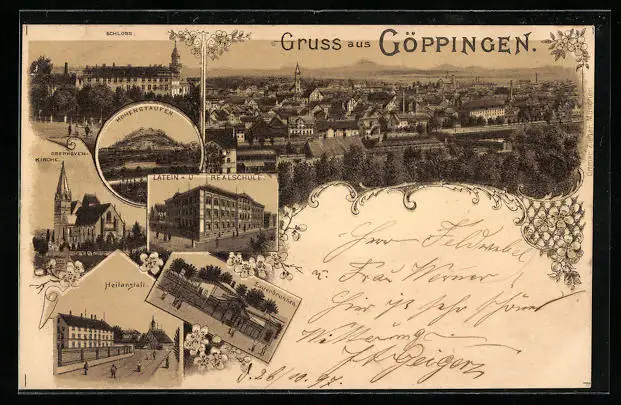 SCHLOSS.
Gruss aus GÖPPINGEN.
HOHENSTAUFEN
OBERHOVEN-
KIRCHE.
LATEIN- U. REALSCHULE.
Heilanstalt.
Herr Feldwebel
u. Frau Werner
hier ist sehr schöne
Witterung
Geiger
26/10. 97.